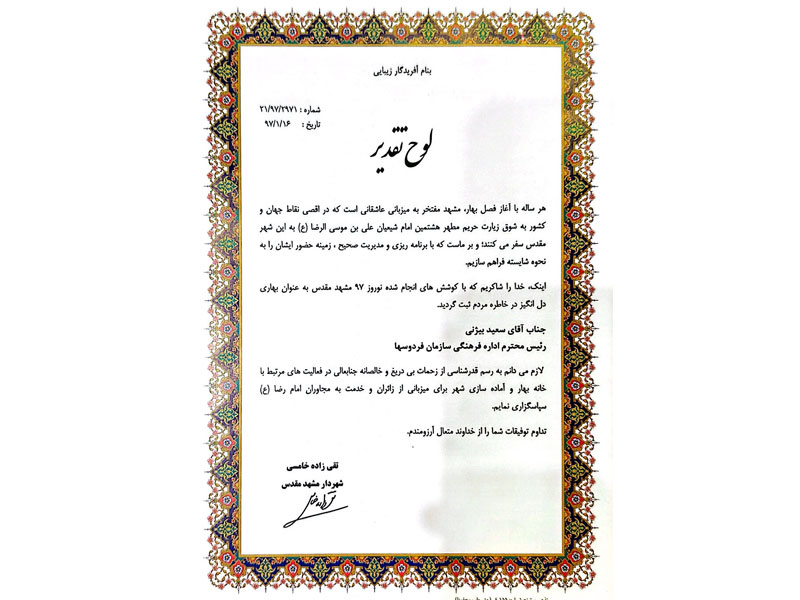 بنام آفریدگار زیبایی
شماره : ۲۱/۹۷/۲۹۷۱
تاریخ : ۹۷/۱/۱۶
لوح تقدیر
هر ساله با آغاز فصل بهار، مشهد مفتخر به میزبانی عاشقانی است که در اقصی نقاط جهان و
کشور به شوق زیارت حریم مطهر هشتمین امام شیعیان علی بن موسی الرضا (ع) به این شهر
مقدس سفر می کنند؛ و بر ماست که با برنامه ریزی و مدیریت صحیح ، زمینه حضور ایشان را به
نحوه شایسته فراهم سازیم.
اینک، خدا را شاکریم که با کوشش های انجام شده نوروز ۹۷ مشهد مقدس به عنوان بهاری
دل انگیز در خاطره مردم ثبت گردید.
جناب آقای سعید بیژنی
رئیس محترم اداره فرهنگی سازمان فردوسها
لازم می دانم به رسم قدرشناسی از زحمات بی دریغ و خالصانه جنابعالی در فعالیت های مرتبط با
خانه بهار و آماده سازی شهر برای میزبانی از زائران و خدمت به مجاوران امام رضا (ع)
سپاسگزاری نمایم.
تداوم توفیقات شما را از خداوند متعال آرزومندم.
تقی زاده خامسی
شهردار مشهد مقدس